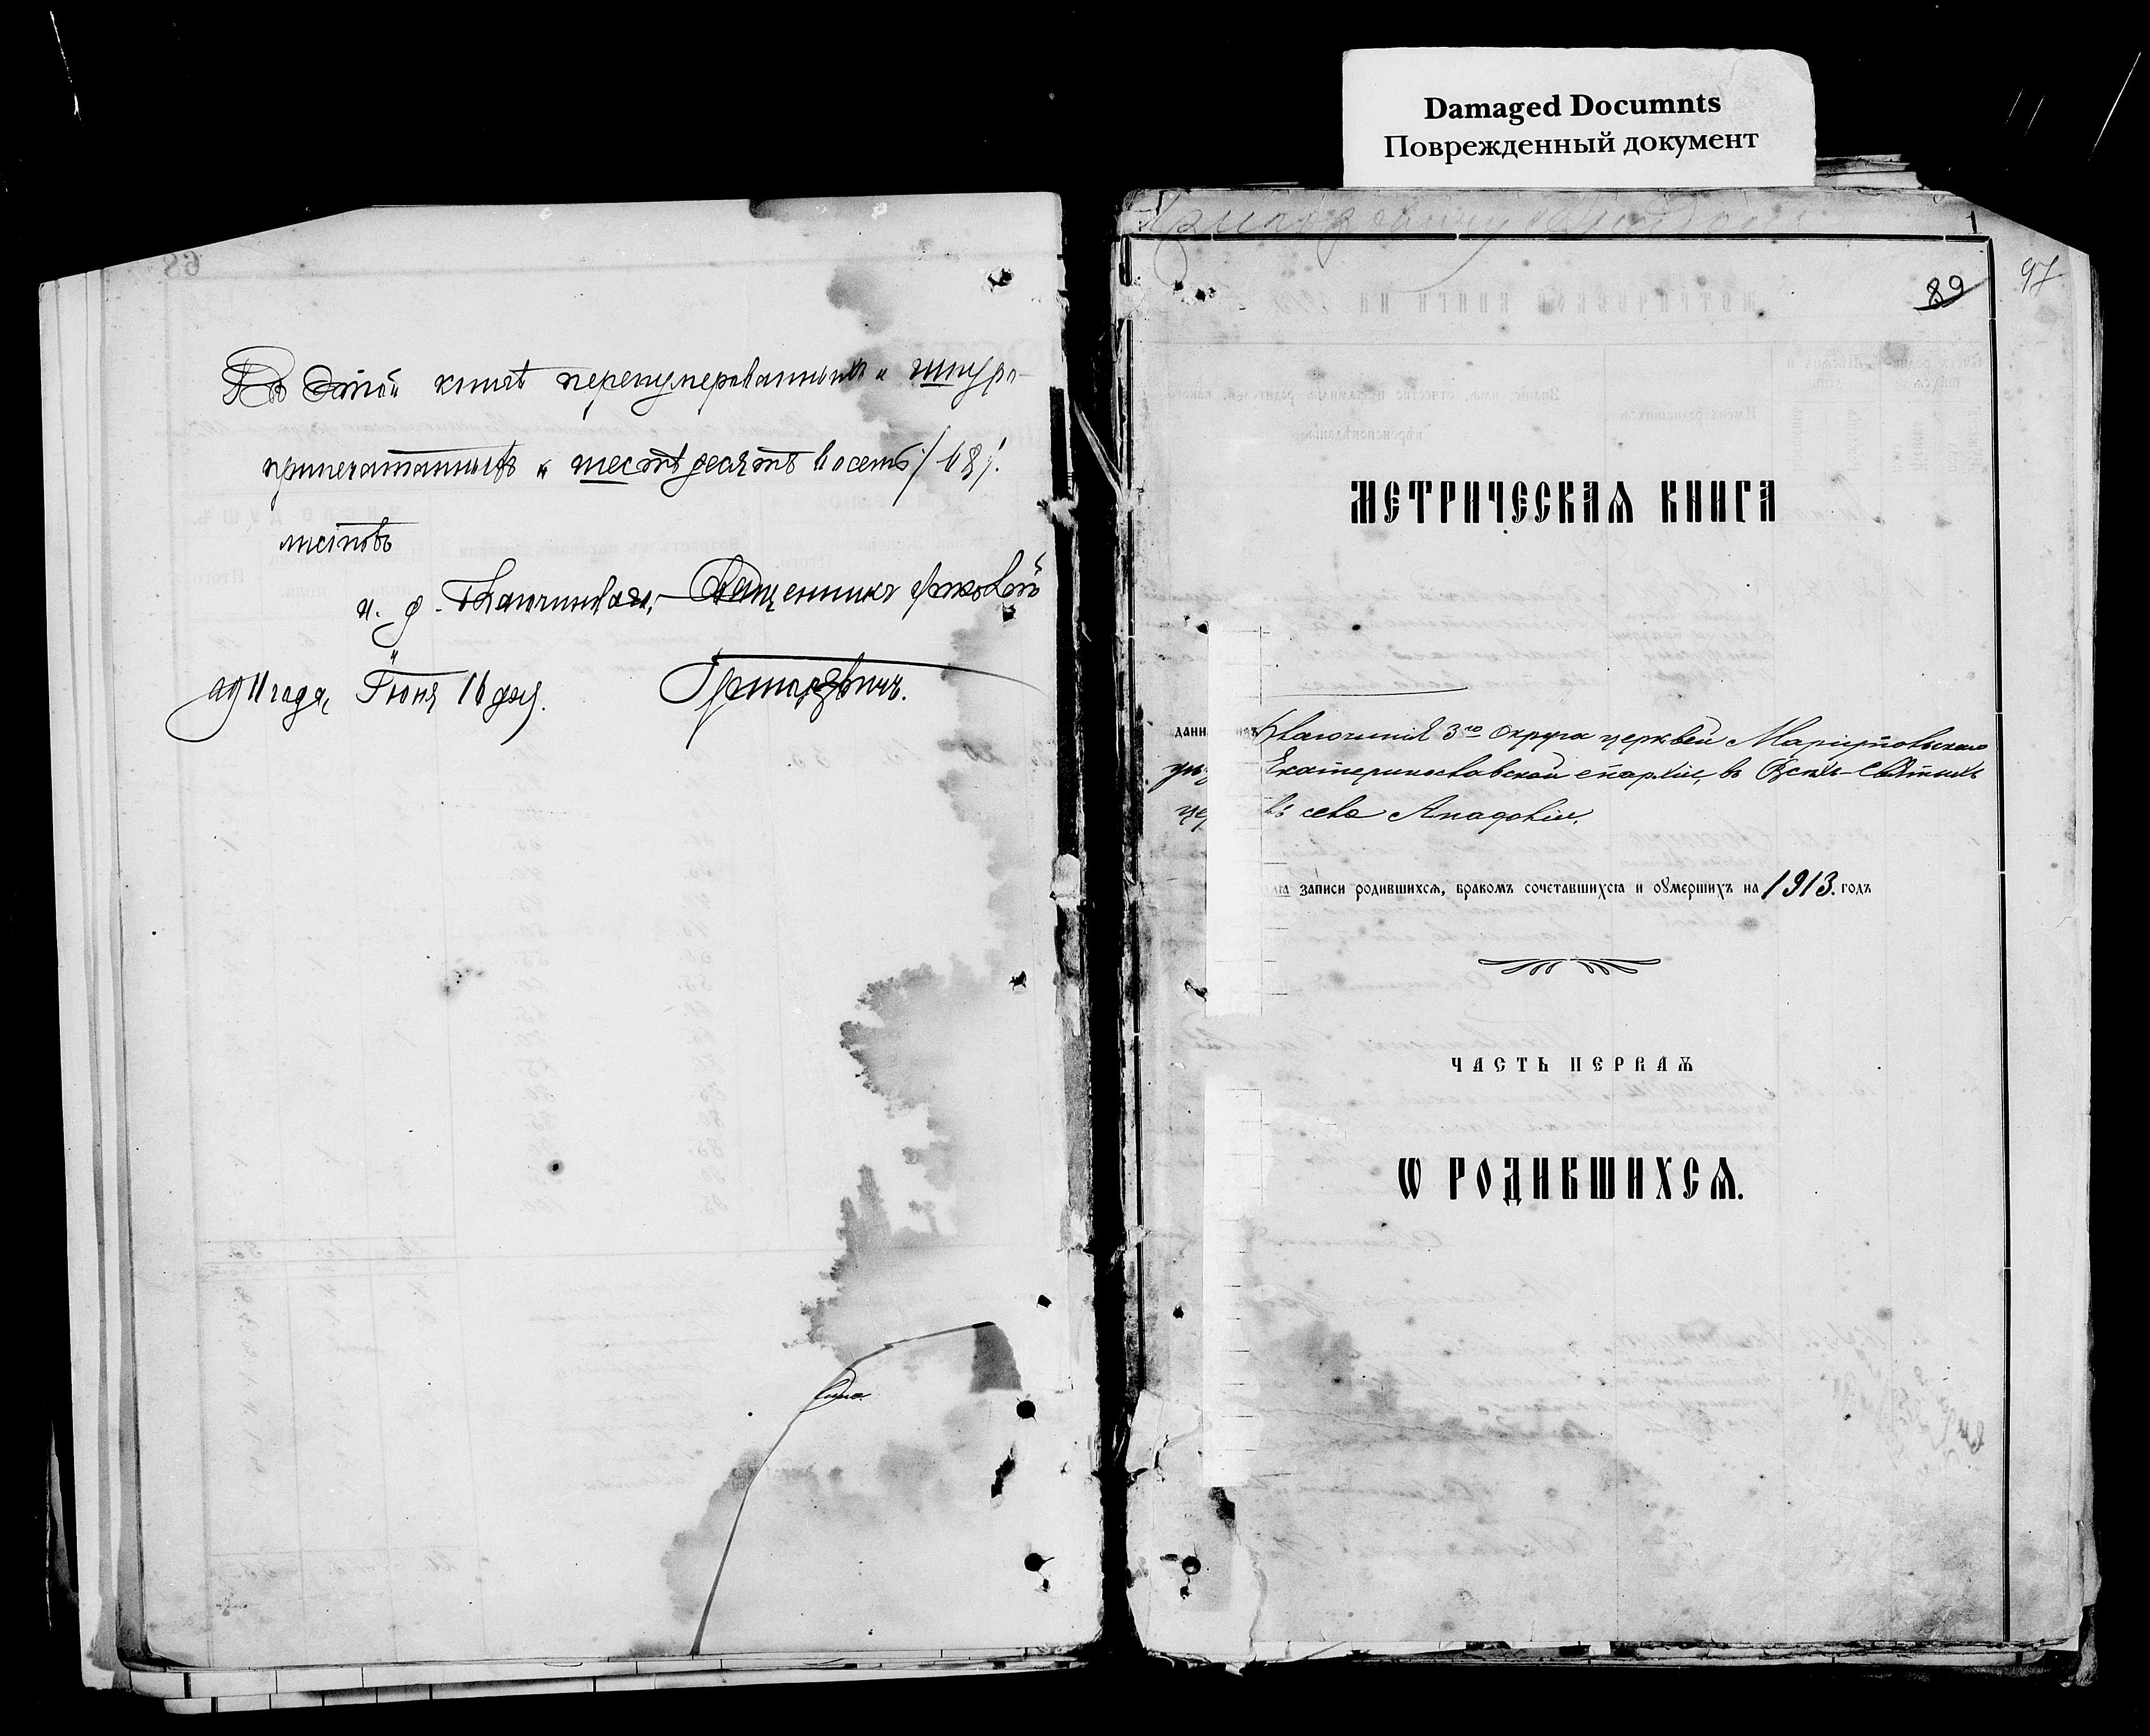 Damaged Documnts
Поврежденный документ
Въ этой книгѣ перенумерованныхъ и шнуро-
припечатанныхъ шестьдесятъ восемь /68/.
листовъ
и. д. Благочиннаго, Священникъ
1911 года, Іюня 16 дня. Григоровичъ.
1
89
97
МЕТРИЧЕСКАЯ КНИГА
данн Благочиннымъ 3го округа церквей Маріупольскаго
Екатеринославской епархіи, въ Всѣхъ-Святыхъ
села Анадоліи.
записи родившихся, бракомъ сочетавшихся и оумершихъ на 1913. годъ
ЧАСТЬ ПЕРВАЯ
Ѡ РОДИВШИХСЯ.